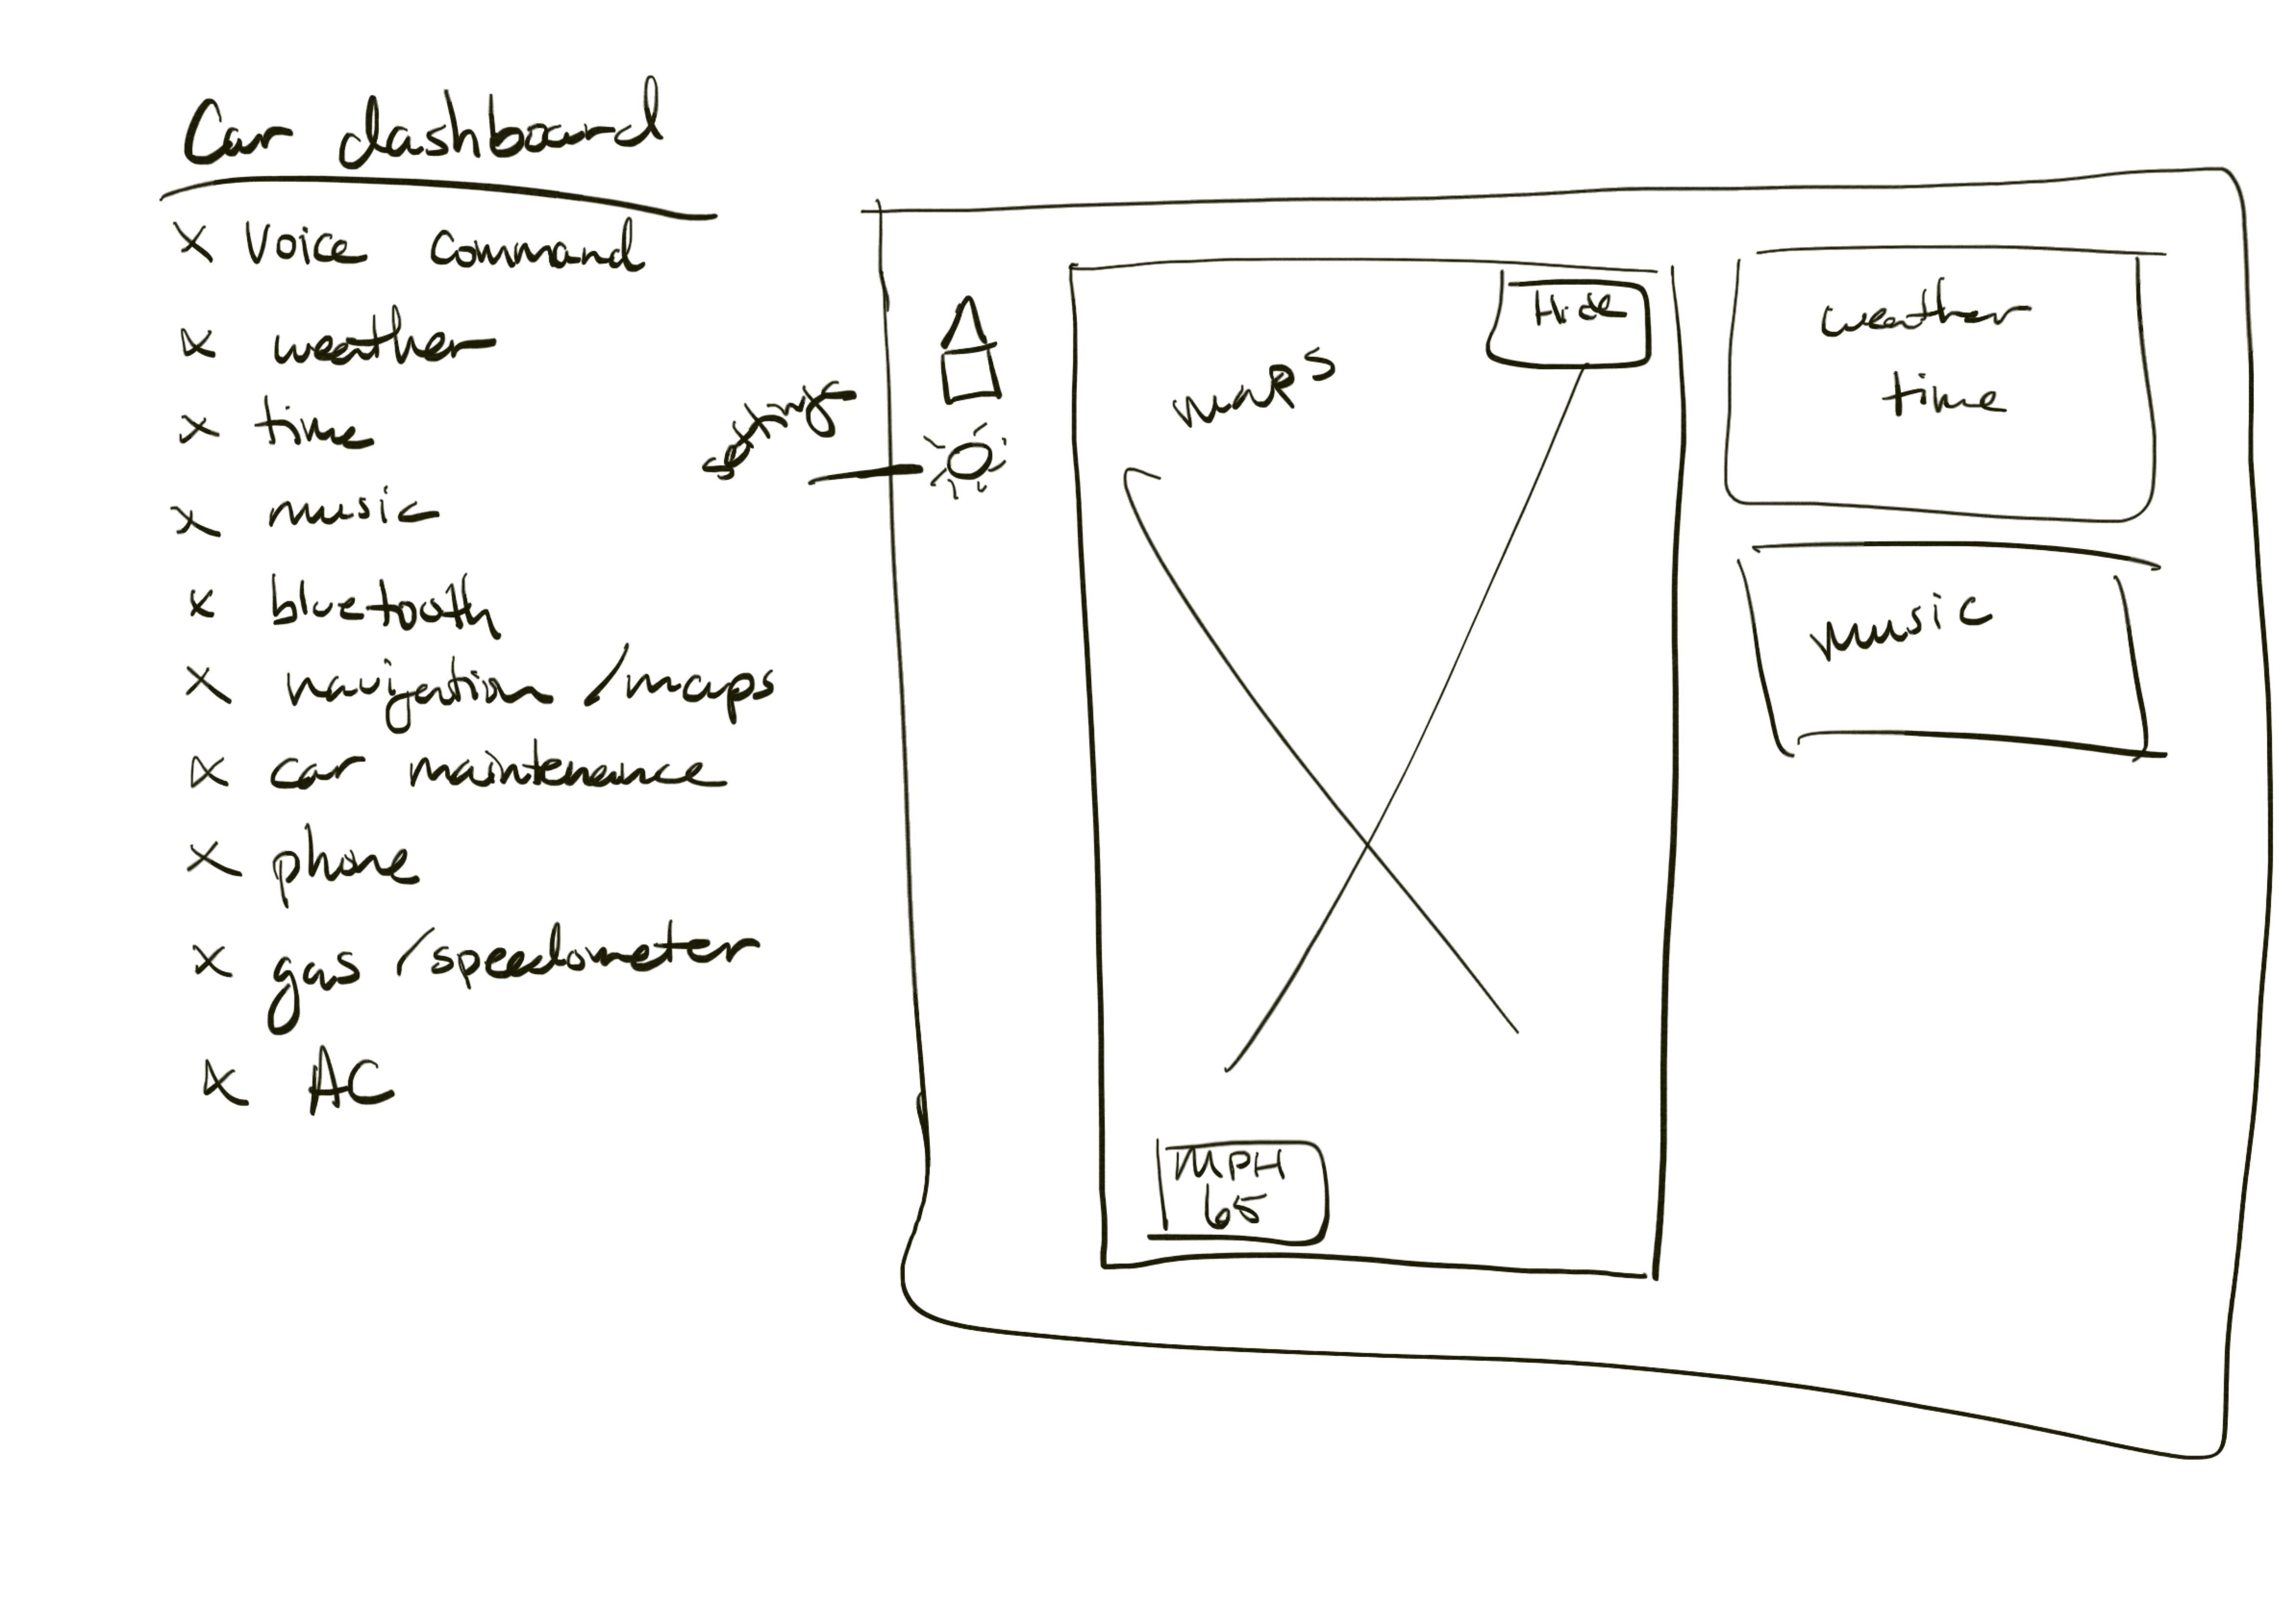 Car dashboard
x Voice Command
x weather
x time
x music
x bluetooth
x navigation /maps
x car maintenance
x phone
x gas /speedometer
x AC
settings
Hide
MAPS
MPH
65
weather
time
Music